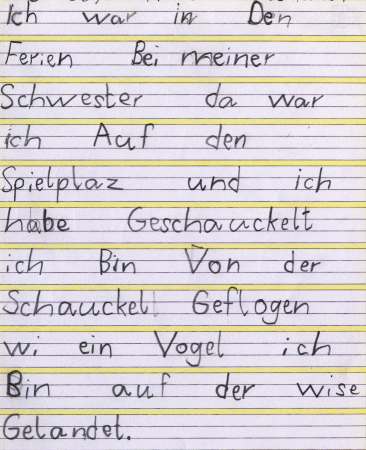 Ich war in Den
Ferien Bei meiner
Schwester da war
ich Auf den
Spielplaz und ich
habe Geschauckelt
ich Bin Von der
Schauckel Geflogen
wi ein Vogel ich
Bin auf der wise
Gelandet.